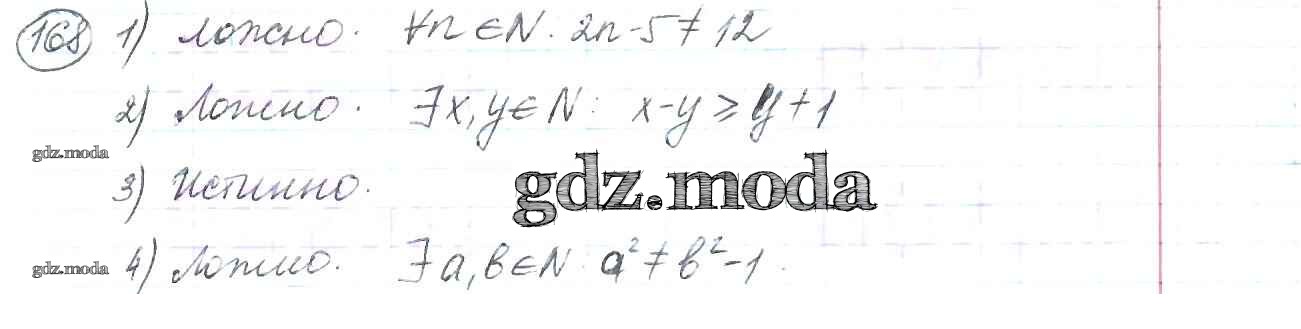 168 1) Ложно. ∀n∈N: 2n-5≠12
2) Ложно. ∃x,y∈N: x-y≥y+1
gdz.moda
3) Истинно.
gdz.moda
gdz.moda 4) Ложно. ∃a,b∈N: a²≠b²-1.